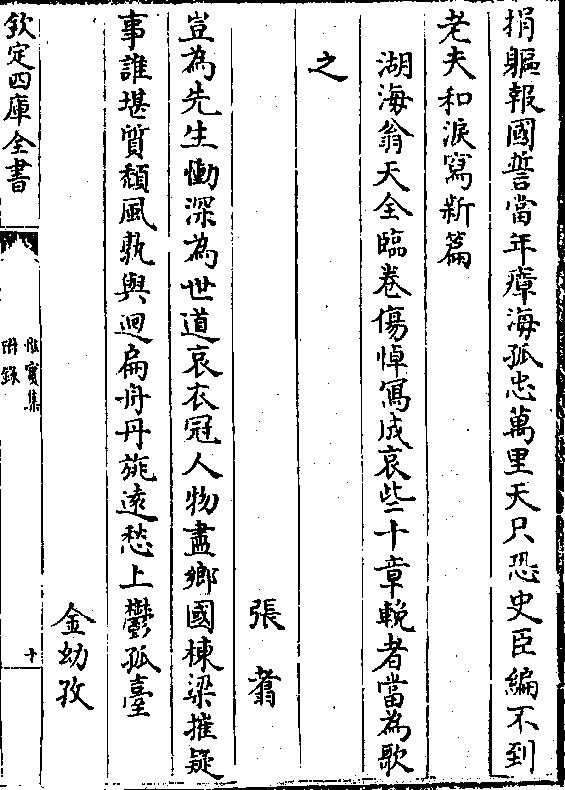 捐軀報國誓當年瘴海孤忠萬里天只恐史臣編不到
老夫和淚寫新篇
湖海翁天全臨卷傷悼冩成哀些十章輓者當為歌
之
張翥
豈為先生慟深為世道哀衣冠人物盡鄉國棟梁摧疑
事誰堪質頹風孰與迴扁舟丹旐遠愁上鬱孤臺
金幼孜
欽定四庫全書
惟實集
附錄
十